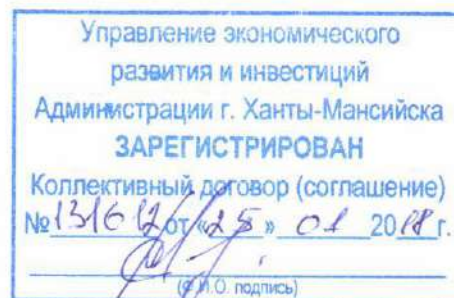 Управление экономического
развития и инвестиций
Администрации г. Ханты-Мансийска
ЗАРЕГИСТРИРОВАН
Коллективный договор (соглашение)
№ 131612 от «25» 01 2018 г.
(Ф.И.О. подпись)